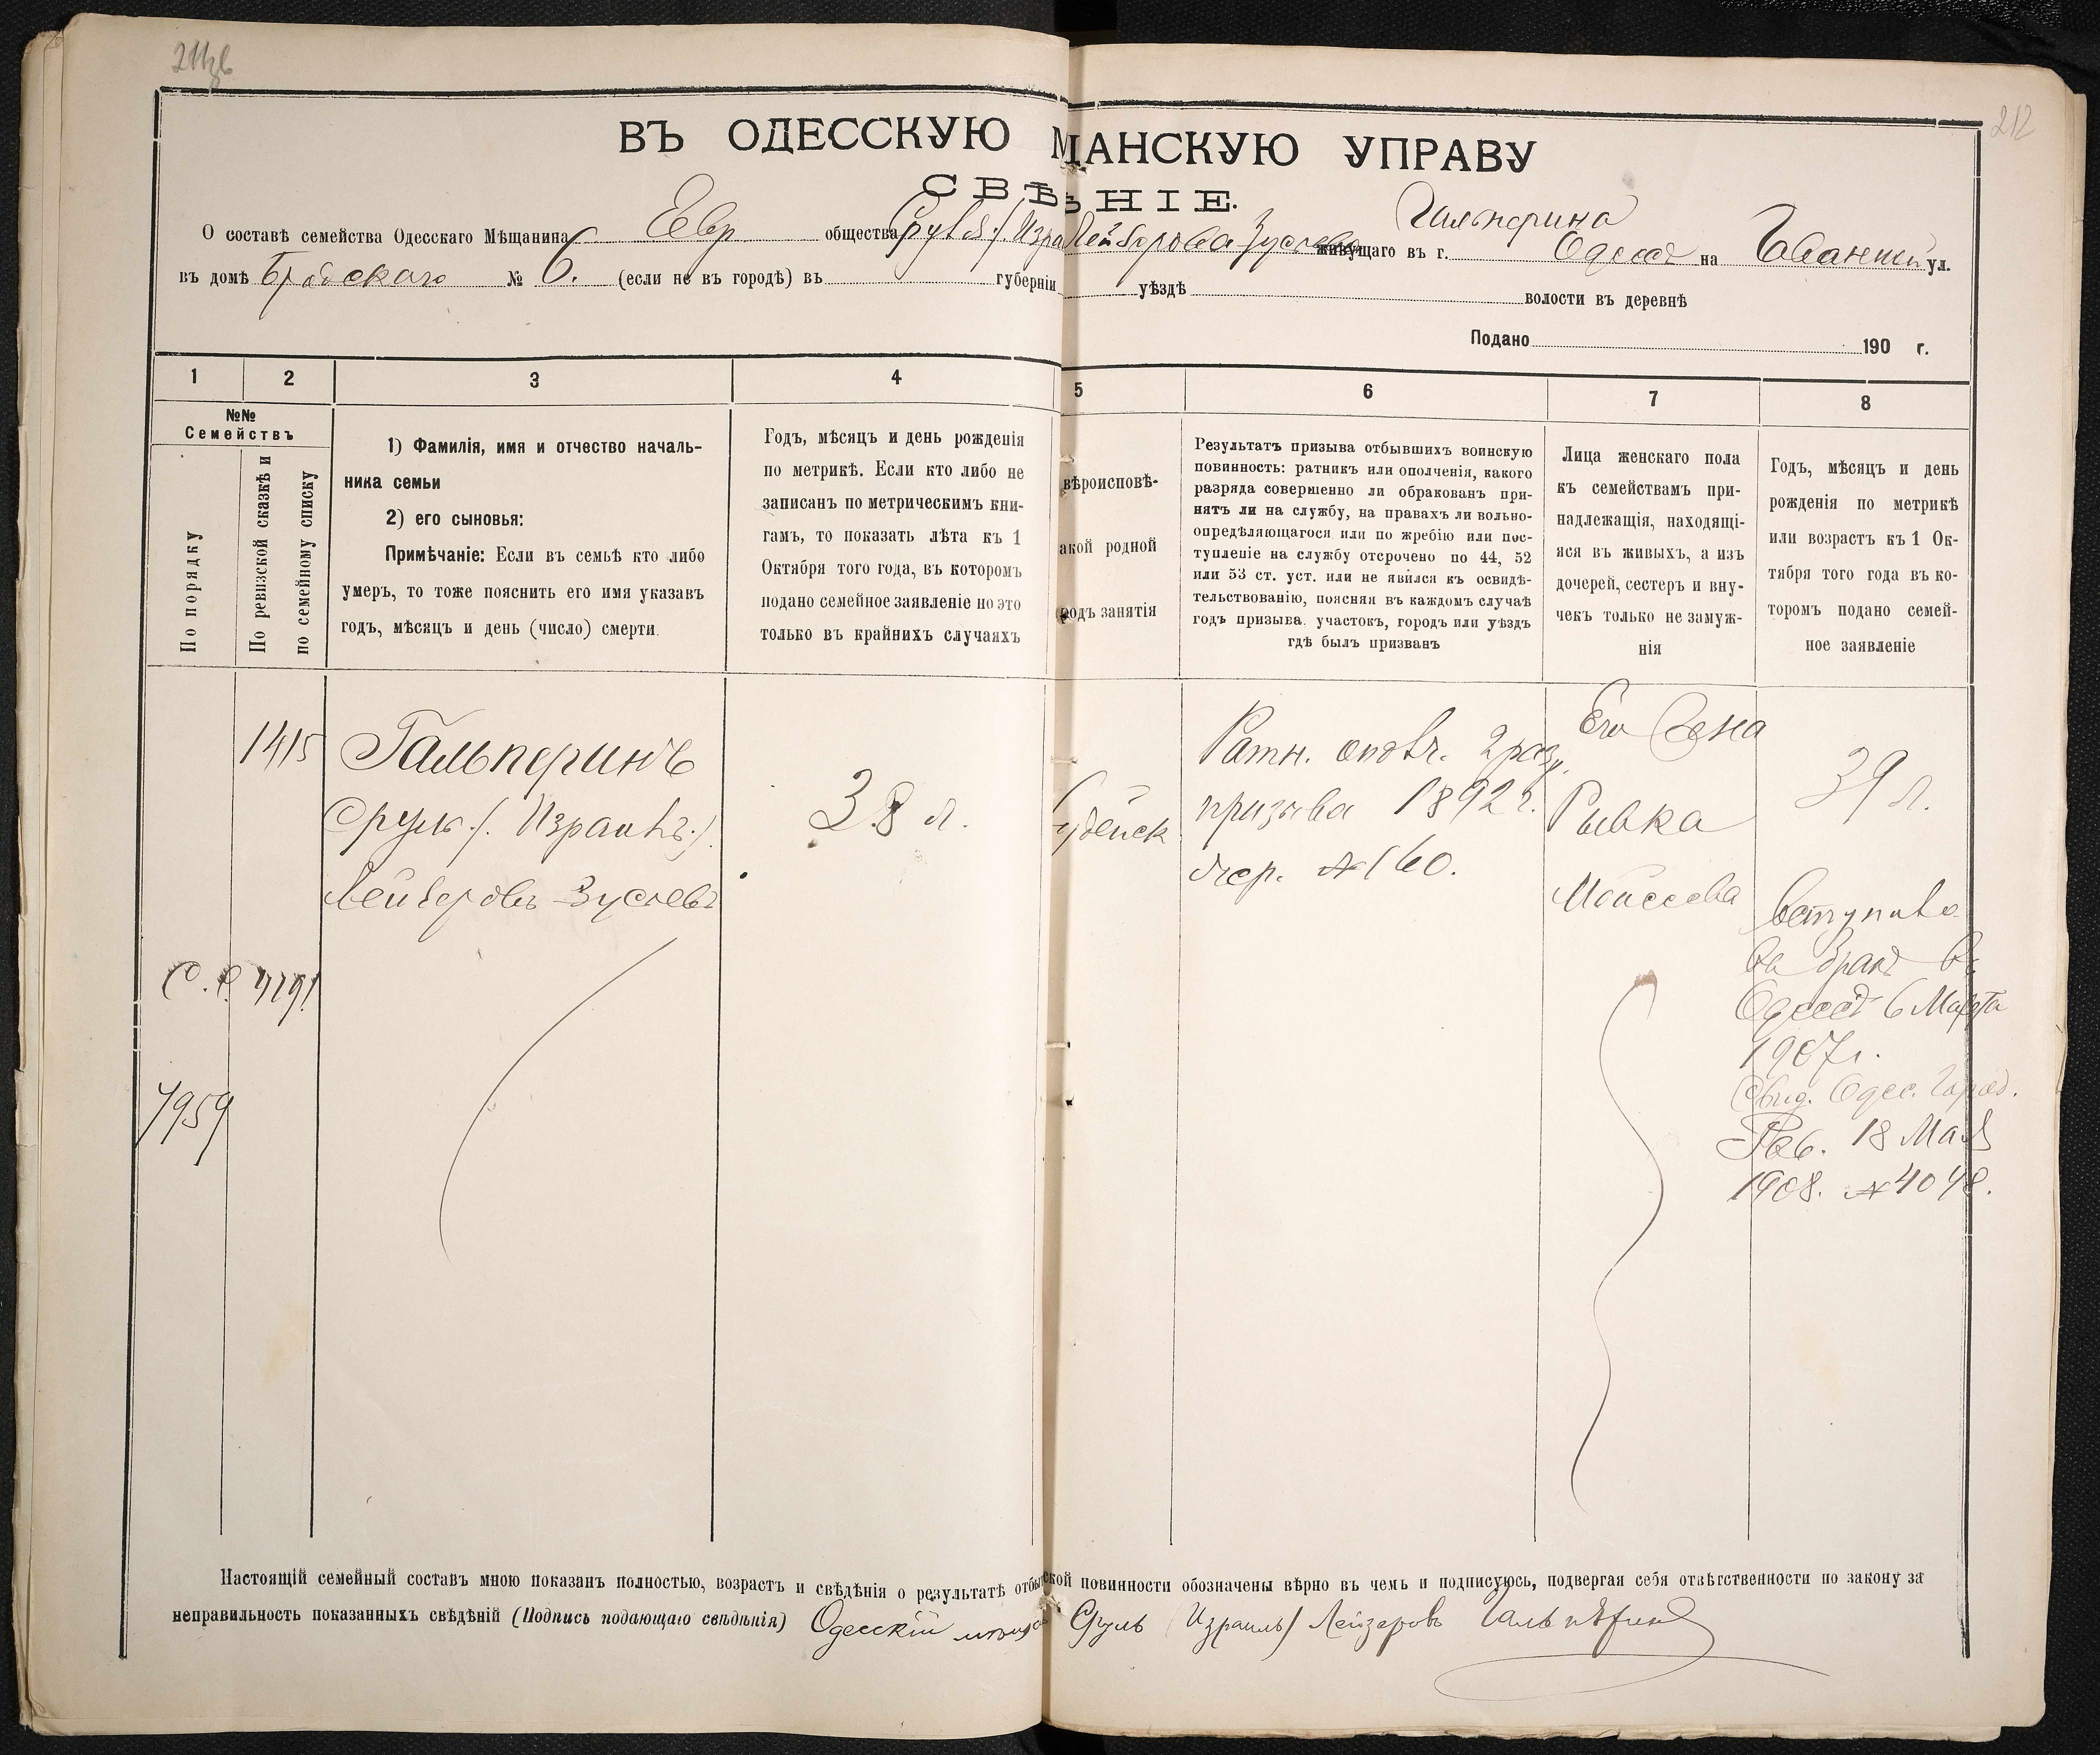 211об
212
ВЪ ОДЕССКУЮ МЩАНСКУЮ УПРАВУ
СВѢНІЕ.
О составѣ семейства Одесскаго Мѣщанина Евр общества Сруля /Изра Лейзерова Зуслева Гальперина живущаго въ г. Одессѣ на Гаванной ул.
въ домѣ Бродскаго № 6. (если не въ городѣ) въ губерніи уѣздѣ волости въ деревнѣ
Подано 190 г.
1 2 3 4 5 6 7 8
№№
Семействъ
По порядку
По ревизской сказкѣ и
по семейному списку
1) Фамилія, имя и отчество началь-
ника семьи
2) его сыновья:
Примѣчаніе: Если въ семьѣ кто либо
умеръ, то тоже пояснить его имя указавъ
годъ, мѣсяцъ и день (число) смерти.
Годъ, мѣсяцъ и день рожденія
по метрикѣ. Если кто либо не
записанъ по метрическимъ кни-
гамъ, то показать лѣта къ 1
Октября того года, въ которомъ
подано семейное заявленіе но это
только въ крайнихъ случаяхъ
вѣроисповѣ-
акой родной
родъ занятія
Результатъ призыва отбывшихъ воинскую
повинность: ратникъ или ополченія, какого
разряда совершенно ли обракованъ при-
нятъ ли на службу, на правахъ ли вольно-
опредѣляющагося или по жребію или пос-
тупленіе на службу отсрочено по 44, 52
или 53 ст. уст. или не явился къ освидѣ-
тельствованію, поясняя въ каждомъ случаѣ
годъ призыва. участокъ, городъ или уѣздъ
гдѣ былъ призванъ
Лица женскаго пола
къ семействамъ при-
надлежащія, находящі-
яся въ живыхъ, а изъ
дочерей, сестеръ и вну-
чекъ только не замуж-
нія
Годъ, мѣсяцъ и день
рожденія по метрикѣ
или возрастъ къ 1 Ок-
тября того года въ ко-
торомъ подано семей-
ное заявленіе
1415
Гальперинъ
Сруль /. Израиль./
Лейзеровъ Зуслевъ
38 л.
удейск
Ратн. ополч. 2 разр.
призыва 1892 г.
жер. № 160.
Его Жена
Рывка
Мойсеева
39 л.
вступила
въ бракъ въ
Одессѣ 6 Марта
1907 г.
Свид. Одес. Город.
Рав. 18 Мая
1908. № 4048.
С. С. 4191
7959
Настоящій семейный составъ мною показанъ полностью, возрастъ и свѣдѣнія о результатѣ отбыской повинности обозначены вѣрно въ чемъ и подписуюсь, подвергая себя отвѣтственности по закону за
неправильность показанныхъ свѣдѣній (Подпись подающаго свѣдѣнія) Одесскій мѣщ Сруль (Израиль) Лейзеровъ Гальперинъ